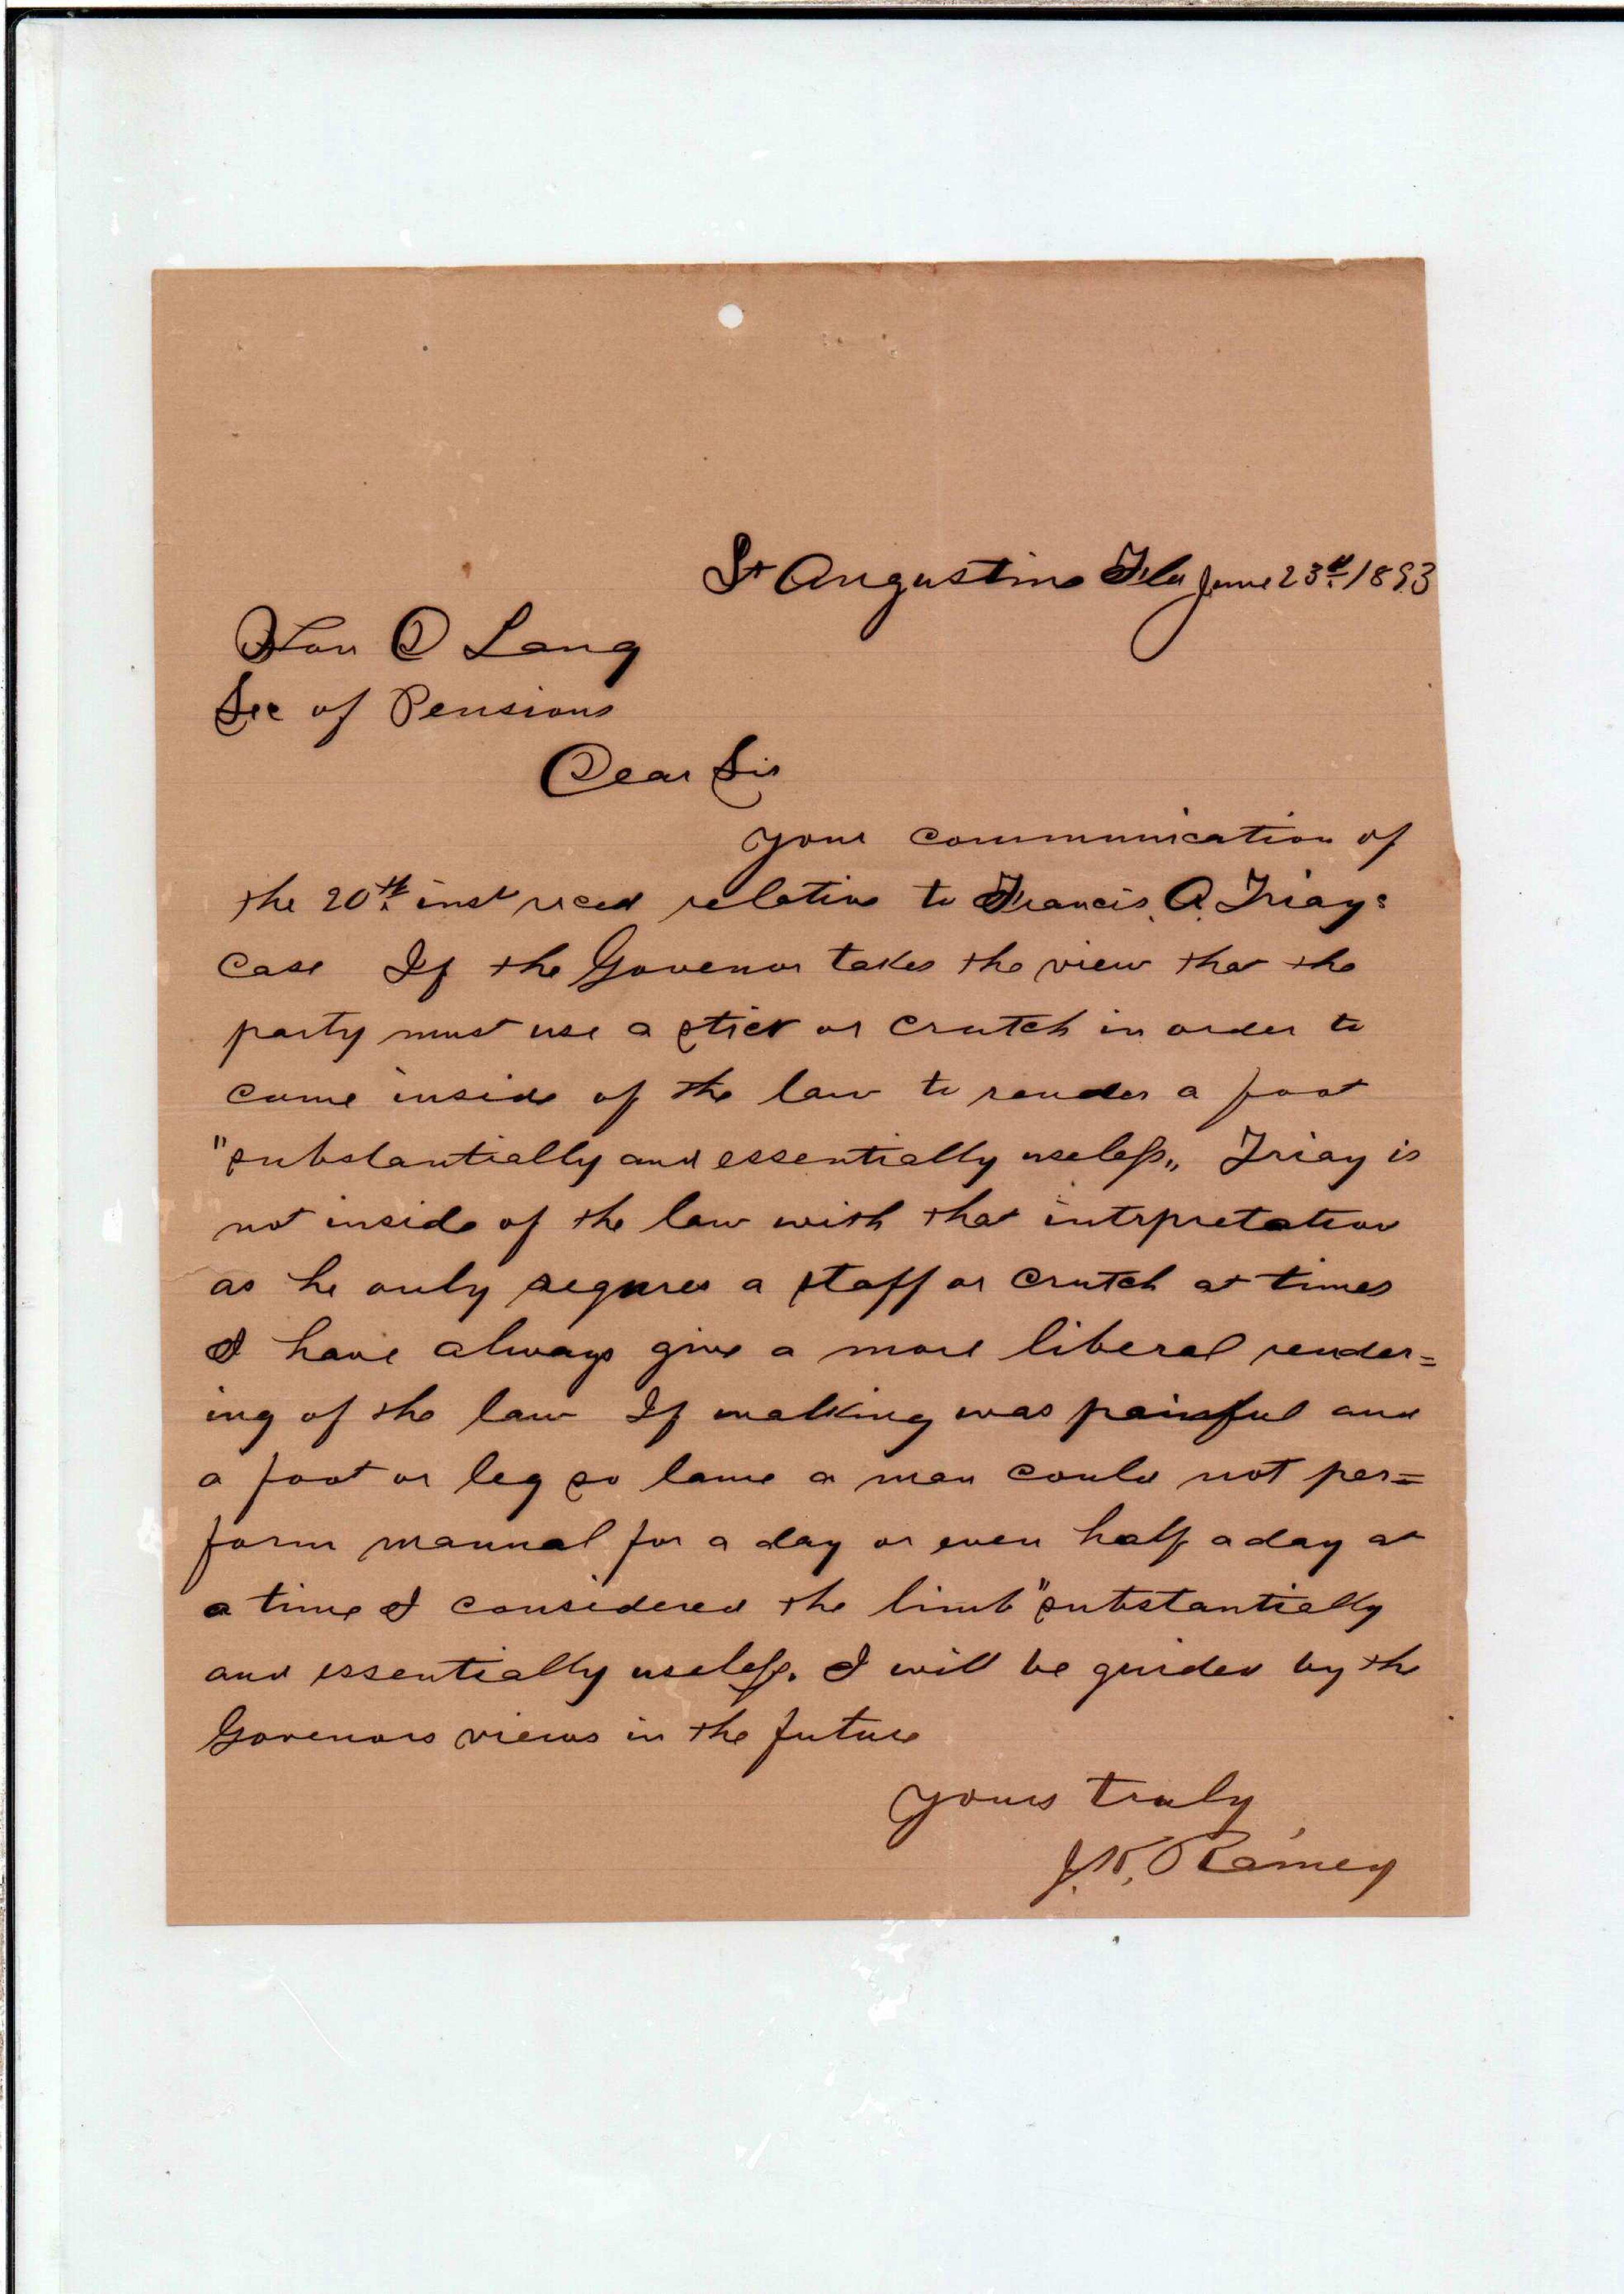 St Augustine Fla June 23d 1893
Hon D Lang
Sec of Pensions
Dear Sir
Your communication of
the 20th inst recd relative to Francis A. Triays
case If the Govenor takes the view that the
party must use a stick or crutch in order to
come inside of the law to render a foot
"substantially and essentially useless" Triay is
not inside of the law with that intrpretation
as he only requres a staff or crutch at times
I have always give a more liberal render=
ing of the law If walking was painful and
a foot or leg so lame a man could not per=
form manual for a day or even half a day at
a time I considered the limb "substantially
and essentially useless. I will be guided by the
Govenors views in the future
Yours truly
J. K. Rainey